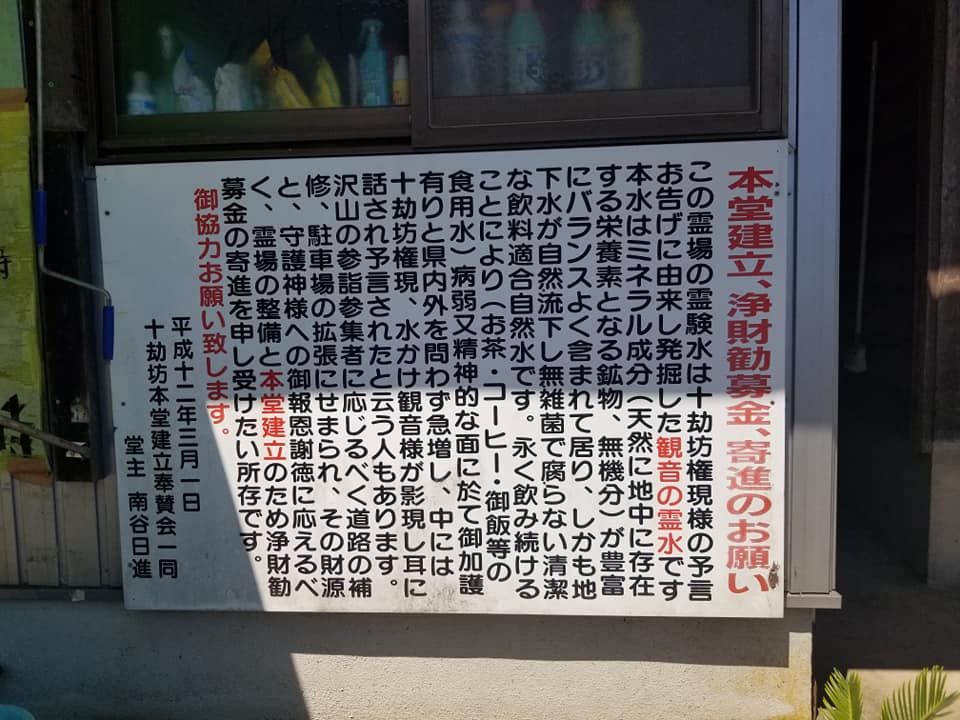 本堂建立、浄財勧募金、寄進のお願い
この霊場の霊験水は十劫坊権現様の予言
お告げに由来し発掘した観音の霊水です
本水はミネラル成分(天然に地中に存在
する栄養素となる鉱物、無機分)が豊富
にバランスよく含まれて居り、しかも地
下水が自然流下し無雑菌で腐らない清潔
な飲料適合自然水です。永く飲み続ける
ことにより(お茶・コーヒー・御飯等の
食用水)病弱又精神的な面に於て御加護
有りと県内外を問わず急増し、中には
十劫坊権現、水かけ観音様が影現し耳に
話され予言されたと云う人もあります。
沢山の参詣参集者に応じるべく道路の補
修、駐車場の拡張にせまられ、その財源
と、守護神様への御報恩謝徳に応えるべ
く、霊場の整備と本堂建立のため浄財勧
募金の寄進を申し受けたい所存です。
御協力お願い致します。
平成十二年三月一日
十劫坊本堂建立奉賛会一同
堂主 南谷日進